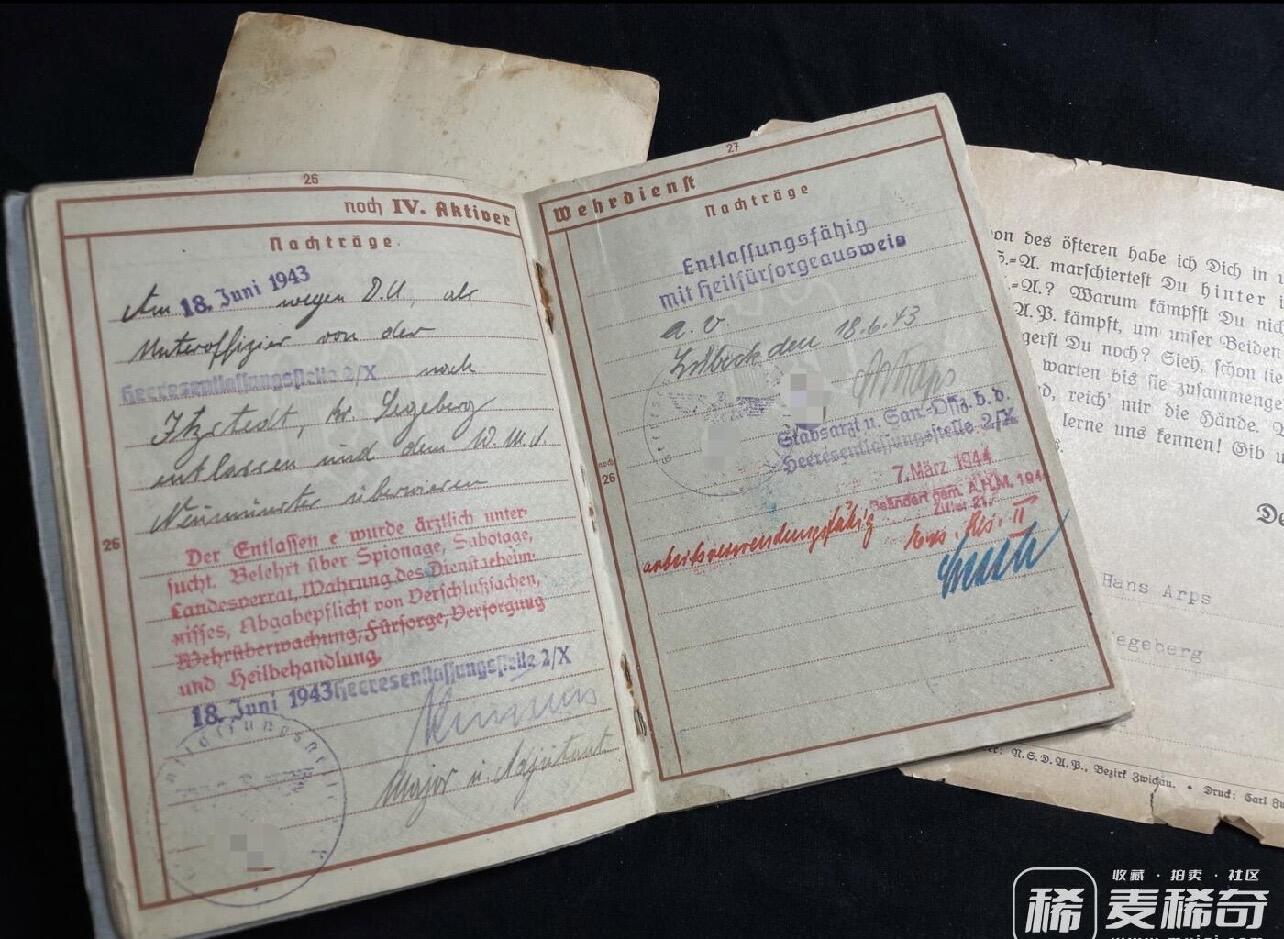 26
noch IV. Aktiver
Nachträge.
Am 18. Juni 1943 wegen D.U. als
Unteroffizier von der
Heeresentlassungsstelle 2/X nach
Itzstedt, Kr. Segeberg
entlassen und dem W.M.A.
Neumünster überwiesen
26
Der Entlassen e wurde ärztlich unter-
sucht. Belehrt über Spionage, Sabotage,
Landesverrat, Wahrung des Dienstgeheim-
nisses, Abgabepflicht von Verschlußsachen,
Wehrüberwachung, Fürsorge, Versorgung
und Heilbehandlung.
18. Juni 1943 Heeresentlassungsstelle 2/X
Major u. Adjutant
27
Wehrdienst
Nachträge
Entlassungsfähig
mit Heilfürsorgeausweis
a. v.
den 18.6.43
Stabsarzt u. San.-Offz. b. d.
Heeresentlassungsstelle 2/X
noch
26
7. März 1944
Geändert gem. A.H.M. 194
Ziffer 21.
arbeitsverwendungsfähig Ers. Res. II
on des öfteren habe ich Dich in
.-A. marschiertest Du hinter
.-A.? Warum kämpfst Du nic
A.P. kämpft, um unser Beiden
gerst Du noch? Sieh, schon lie
warten bis sie zusammenge
d, reich' mir die Hände.
lerne uns kennen! Gib u
De
Hans Arps
egeberg
N.S.D.A.P., Bezirk Zwickau. • Druck: Carl
收藏 · 拍卖 · 社区
稀 麦稀奇